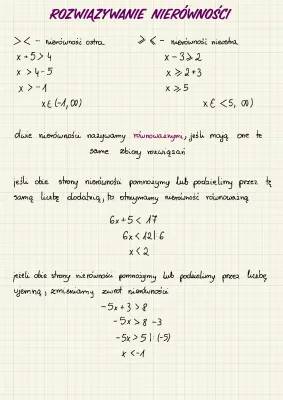 ROZWIĄZYWANIE NIERÓWNOŚCI
> < - nierówność ostra
⩾ ⩽ - nierówność nieostra
x + 5 > 4
x - 3 ⩾ 2
x > 4 - 5
x ⩾ 2 + 3
x > -1
x ⩾ 5
x ∈ (-1, ∞)
x ∈ <5, ∞)
dwie nierówności nazywamy równoważnymi, jeśli mają one te
same zbiory rozwiązań
jeśli obie strony nierówności pomnożymy lub podzielimy przez tę
samą liczbę dodatnią, to otrzymamy nierówność równoważną
6x + 5 < 17
6x < 12 | : 6
x < 2
jeżeli obie strony nierówności pomnożymy lub podzielimy przez liczbę
ujemną, zmieniamy zwrot nierówności
-5x + 3 > 8
-5x > 8 - 3
-5x > 5 | : (-5)
x < -1